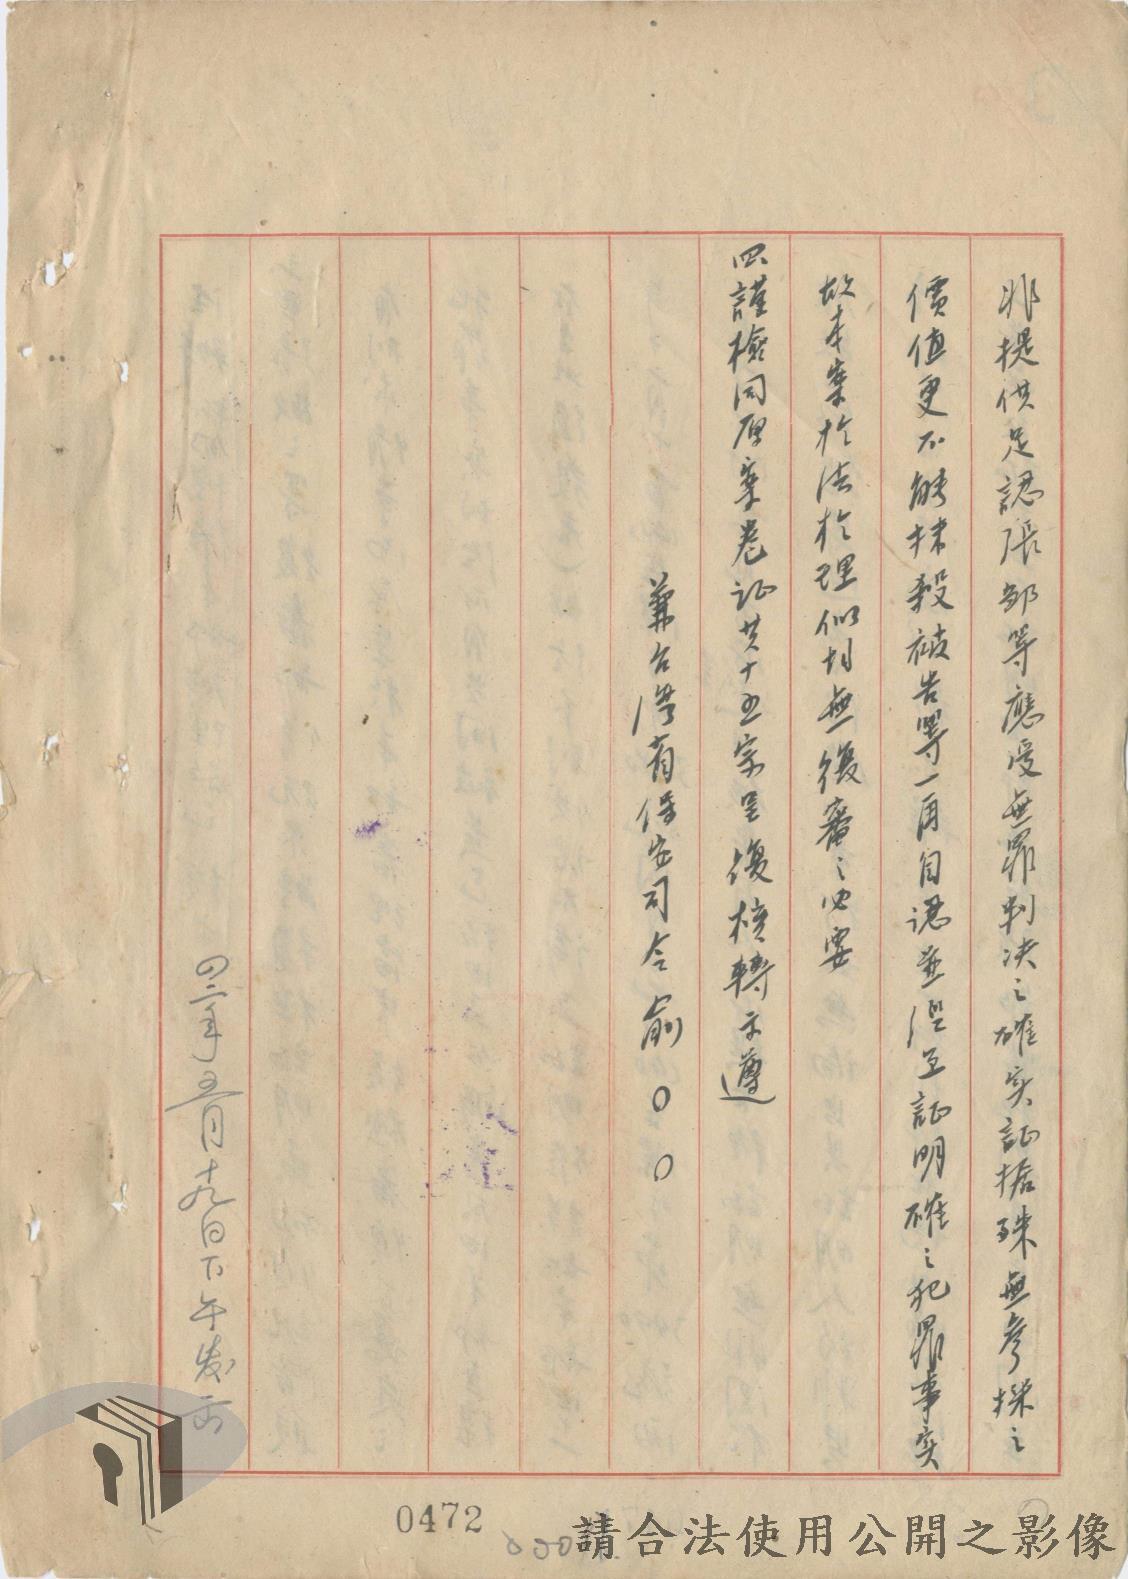 非提供足認張鄒等應受無罪判決之確实証据殊無參採之
價值更不能抹殺被告等一再自認並經互証明確之犯罪事实
故本案於法於理似均無復審之必要
四謹檢同原案卷证共十五宗呈復核轉示遵
兼台湾省保安司令俞〇〇
四三年五月十九日下午发出
0472
請合法使用公開之影像